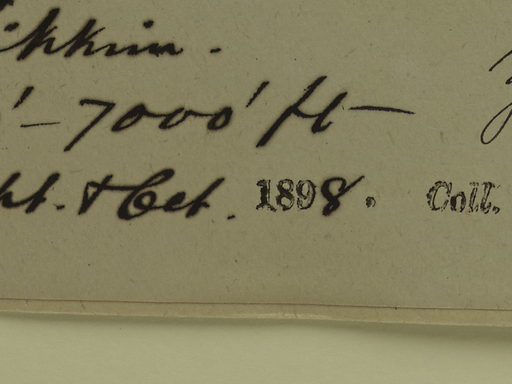 ikkim.
'-7000' ft
pt. & Oct. 1898. Coll.